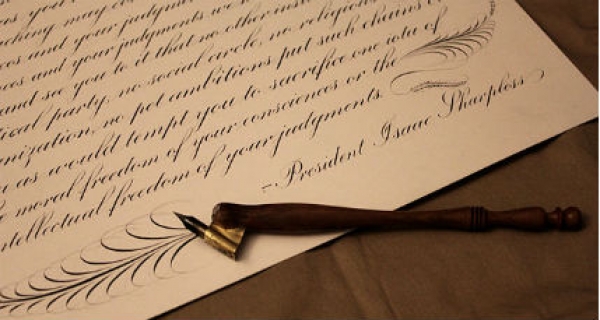 ns you
aching may
ces and your judgments
and see you to it that no other inst
tical party, no social circle, no religious
anization, no pet ambitions put such chains o
u as would tempt you to sacrifice one iota of
e moral freedom of your consciences or the
ntellectual freedom of your judgments.
- President Isaac Sharpless